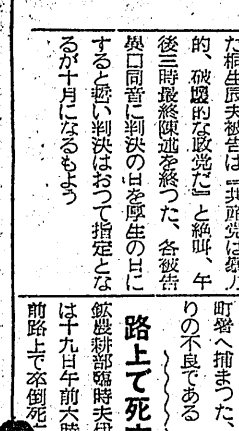 た桐生辰夫被告は『共産党は暴力
的、破壊的な政党だ』と絶叫、午
後三時最終陳述を終つた、各被告
異口同音に判決の日を厚生の日に
すると誓い判決はおつて指定とな
るが十月になるもよう
町署へ捕まつた、
りの不良である
路上で死
鉱農耕部臨時夫伊
は十九日午前六時
前路上で卒倒死亡